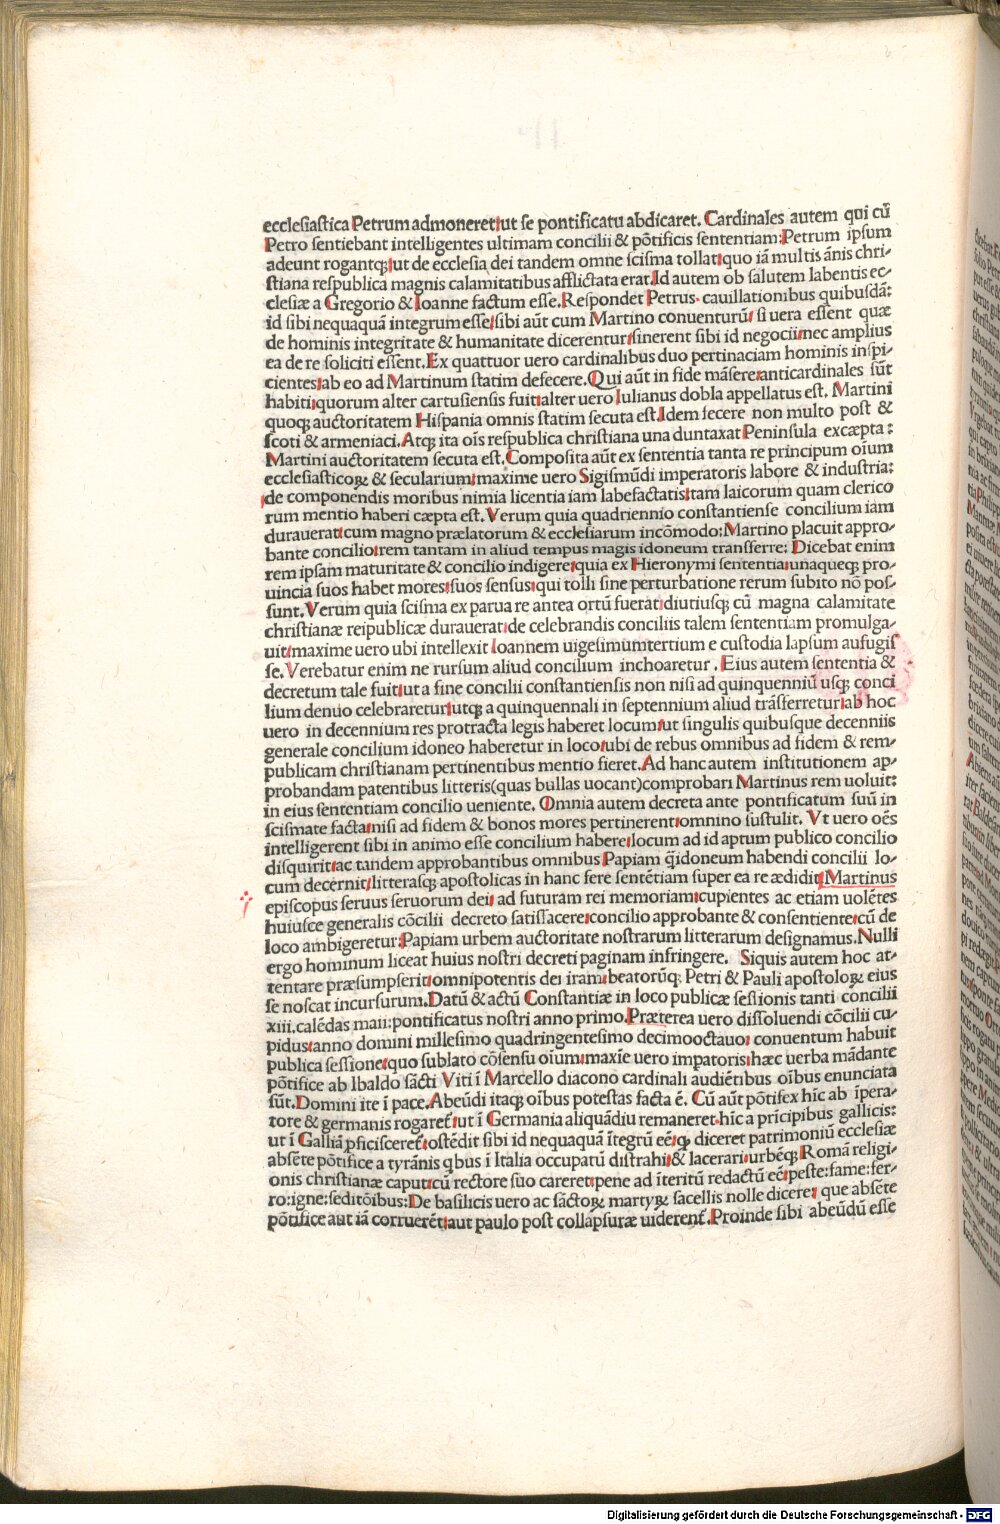 ecclesiastica Petrum admoneret: ut se pontificatu abdicaret. Cardinales autem qui cū
Petro sentiebant intelligentes ultimam concilii & pōtificis sententiam: Petrum ipsum
adeunt rogantꝗ: ut de ecclesia dei tandem omne scisma tollat: quo iā multis ānis chri-
stiana respublica magnis calamitatibus afflictata erat. Id autem ob salutem labentis ec-
clesiæ a Gregorio & Ioanne factum esse. Respondet Petrus. cauillationibus quibusdā:
id sibi nequaquā integrum esse: sibi aūt cum Martino conuenturū: si uera essent quæ
de hominis integritate & humanitate dicerentur: sinerent sibi id negocii: nec amplius
ea de re soliciti essent. Ex quattuor uero cardinalibus duo pertinaciam hominis inspi-
cientes: ab eo ad Martinum statim defecere. Qui aūt in fide māsere: anticardinales sūt
habiti: quorum alter cartusiensis fuit: alter uero Iulianus dobla appellatus est. Martini
quoqꝫ auctoritatem Hispania omnis statim secuta est. Idem fecere non multo post &
scoti & armeniaci. Atqꝫ ita oīs respublica christiana una duntaxat Peninsula excæpta:
Martini auctoritatem secuta est. Composita aūt ex sententia tanta re principum oīum
ecclesiasticoꝝ & secularium: maxime uero Sigismūdi imperatoris labore & industria:
de componendis moribus nimia licentia iam labefactatis: tam laicorum quam clerico
rum mentio haberi cæpta est. Verum quia quadriennio constantiense concilium iam
durauerat: cum magno prælatorum & ecclesiarum incōmodo: Martino placuit appro-
bante concilio: rem tantam in aliud tempus magis idoneum transferre: Dicebat enim
rem ipsam maturitate & concilio indigere: quia ex Hieronymi sententia: unaqueqꝫ pro-
uincia suos habet mores: suos sensus: qui tolli sine perturbatione rerum subito nō pos-
sunt. Verum quia scisma ex parua re antea ortū fuerat: diutiusqꝫ cū magna calamitate
christianæ reipublicæ durauerat: de celebrandis conciliis talem sententiam promulga-
uit: maxime uero ubi intellexit Ioannem uigesimumtertium e custodia lapsum aufugis
se. Verebatur enim ne rursum aliud concilium inchoaretur. Eius autem sententia &
decretum tale fuit: ut a fine concilii constantiensis non nisi ad quinquenniū usqꝫ conci
lium denuo celebraretur: utqꝫ a quinquennali in septennium aliud trāsferretur: ab hoc
uero in decennium res protracta legis haberet locum: ut singulis quibusque decenniis
generale concilium idoneo haberetur in loco: ubi de rebus omnibus ad fidem & rem-
publicam christianam pertinentibus mentio fieret. Ad hanc autem institutionem ap-
probandam patentibus litteris (quas bullas uocant) comprobari Martinus rem uoluit:
in eius sententiam concilio ueniente. Omnia autem decreta ante pontificatum suū in
scismate facta: nisi ad fidem & bonos mores pertinerent: omnino sustulit. Vt uero oēs
intelligerent sibi in animo esse concilium habere: locum ad id aptum publico concilio
disquirit: ac tandem approbantibus omnibus Papiam q̄ idoneum habendi concilii lo-
cum decernit: litterasqꝫ apostolicas in hanc fere sentētiam super ea re ædidit: Martinus
episcopus seruus seruorum dei: ad futuram rei memoriam: cupientes ac etiam uolētes
huiusce generalis cōcilii decreto satisfacere: concilio approbante & consentiente: cū de
loco ambigeretur: Papiam urbem auctoritate nostrarum litterarum designamus. Nulli
ergo hominum liceat huius nostri decreti paginam infringere. Siquis autem hoc at-
tentare præsumpserit: omnipotentis dei iram: beatorūqꝫ Petri & Pauli apostoloꝝ eius
se noscat incursurum. Datū & actū Constantiæ in loco publicæ sessionis tanti concilii
xiii. calēdas maii: pontificatus nostri anno primo. Præterea uero dissoluendi cōcilii cu-
pidus: anno domini millesimo quadringentesimo decimooctauo: conuentum habuit
publica sessione: quo sublato cōsensu oīum: maxīe uero impatoris: hæc uerba mādante
pōtifice ab Ibaldo sācti Viti ī Marcello diacono cardinali audiētibus oībus enunciata
sūt. Domini ite ī pace. Abeūdi itaqꝫ oībus potestas facta ē. Cū aūt pōtifex hīc ab īpera-
tore & germanis rogaret̄: ut ī Germania aliquādiu remaneret: hīc a prīcipibus gallicis:
ut ī Galliā ꝓficisceret̄: ostēdit sibi id nequaquā ītegrū eē: qꝫ diceret patrimoniū ecclesiæ
absēte pōtifice a tyrānis qbus ī Italia occupatū distrahi: & lacerari: urbēqꝫ Romā religi-
onis christianæ caput: cū rectore suo careret: pene ad īteritū redactū eē: peste: fame: fer-
ro: igne: seditōibus: De basilicis uero ac sāctoꝝ martyꝝ sacellis nolle dicere: que absēte
pōtifice aut iā corruerēt: aut paulo post collapsuræ uiderent̄. Proinde sibi abeūdū esse
Digitalisierung gefördert durch die Deutsche Forschungsgemeinschaft - DFG